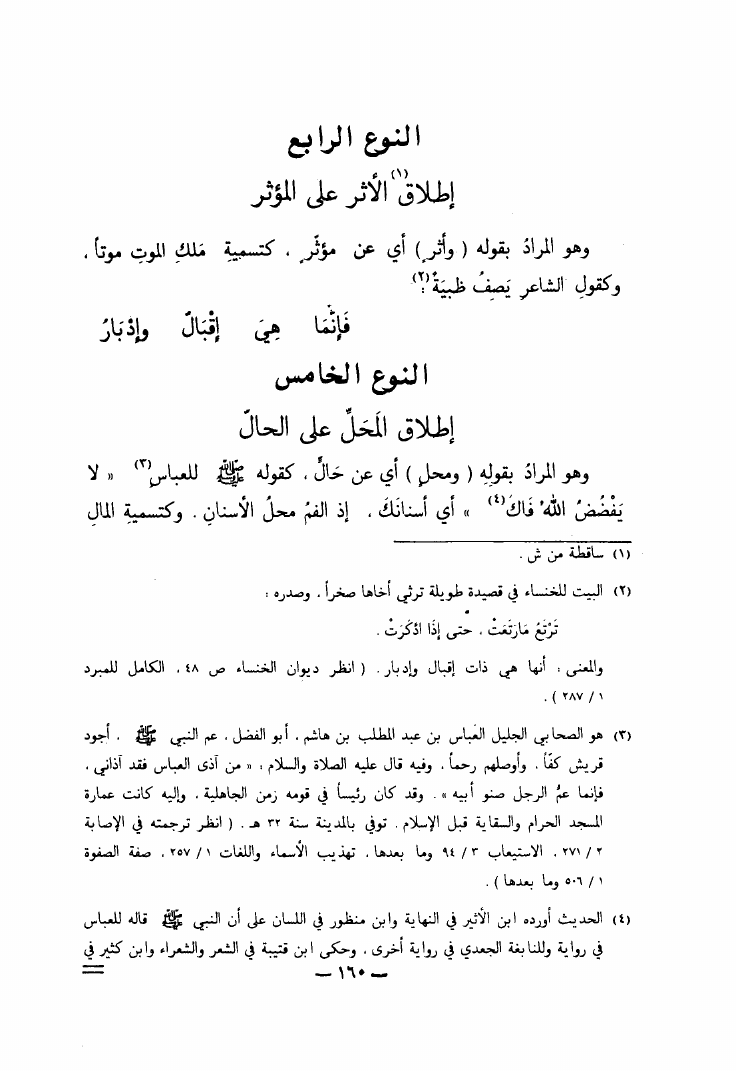 النوع الرابع
إطلاق(١) الأثر على المؤثر
وهو المرادُ بقوله ( وأثرٍ ) أي عن مؤثِّرٍ ، كتسميةِ مَلَكِ الموتِ موتاً ،
وكقولِ الشاعرِ يَصِفُ ظبيَةً(٢) :
فَإِنَّمَا هِيَ إِقْبَالٌ وإِدْبَارُ
النوع الخامس
إطلاق المَحَلِّ على الحالّ
وهو المرادُ بقولِهِ ( ومحلٍ ) أي عن حَالٍّ ، كقوله ﷺ للعباسِ(٣) « لا
يَفْضُضُ اللهُ فَاكَ(٤) » أي أسنانَكَ ، إذ الفمُ محلُ الأسنانِ . وكتسميةِ المالِ
(١) ساقطة من ش .
(٢) البيت للخنساء في قصيدة طويلة ترثي أخاها صخراً ، وصدره :
تَرْتَعُ مَارَتَعَتْ ، حتى إِذَا ادْكَرَتْ .
والمعنى : أنها هي ذات إقبال وإدبار . ( انظر ديوان الخنساء ص ٤٨ ، الكامل للمبرد
١ / ٢٨٧ ) .
(٣) هو الصحابي الجليل العباس بن عبد المطلب بن هاشم ، أبو الفضل ، عم النبي ﷺ ، أجود
قريش كفّاً ، وأوصلهم رحماً ، وفيه قال عليه الصلاة والسلام : « من آذى العباس فقد آذاني ،
فإنما عمُّ الرجل صنو أبيه » . وقد كان رئيساً في قومه زمن الجاهلية ، وإليه كانت عمارة
المسجد الحرام والسقاية قبل الإسلام . توفي بالمدينة سنة ٣٢ هـ . ( انظر ترجمته في الإصابة
٢ / ٢٧١ ، الاستيعاب ٣ / ٩٤ وما بعدها ، تهذيب الأسماء واللغات ١ / ٢٥٧ ، صفة الصفوة
١ / ٥٠٦ وما بعدها ) .
(٤) الحديث أورده ابن الأثير في النهاية وابن منظور في اللسان على أن النبي ﷺ قاله للعباس
في رواية وللنابغة الجعدي في رواية أخرى ، وحكى ابن قتيبة في الشعر والشعراء وابن كثير في
=
— ١٦٠ —